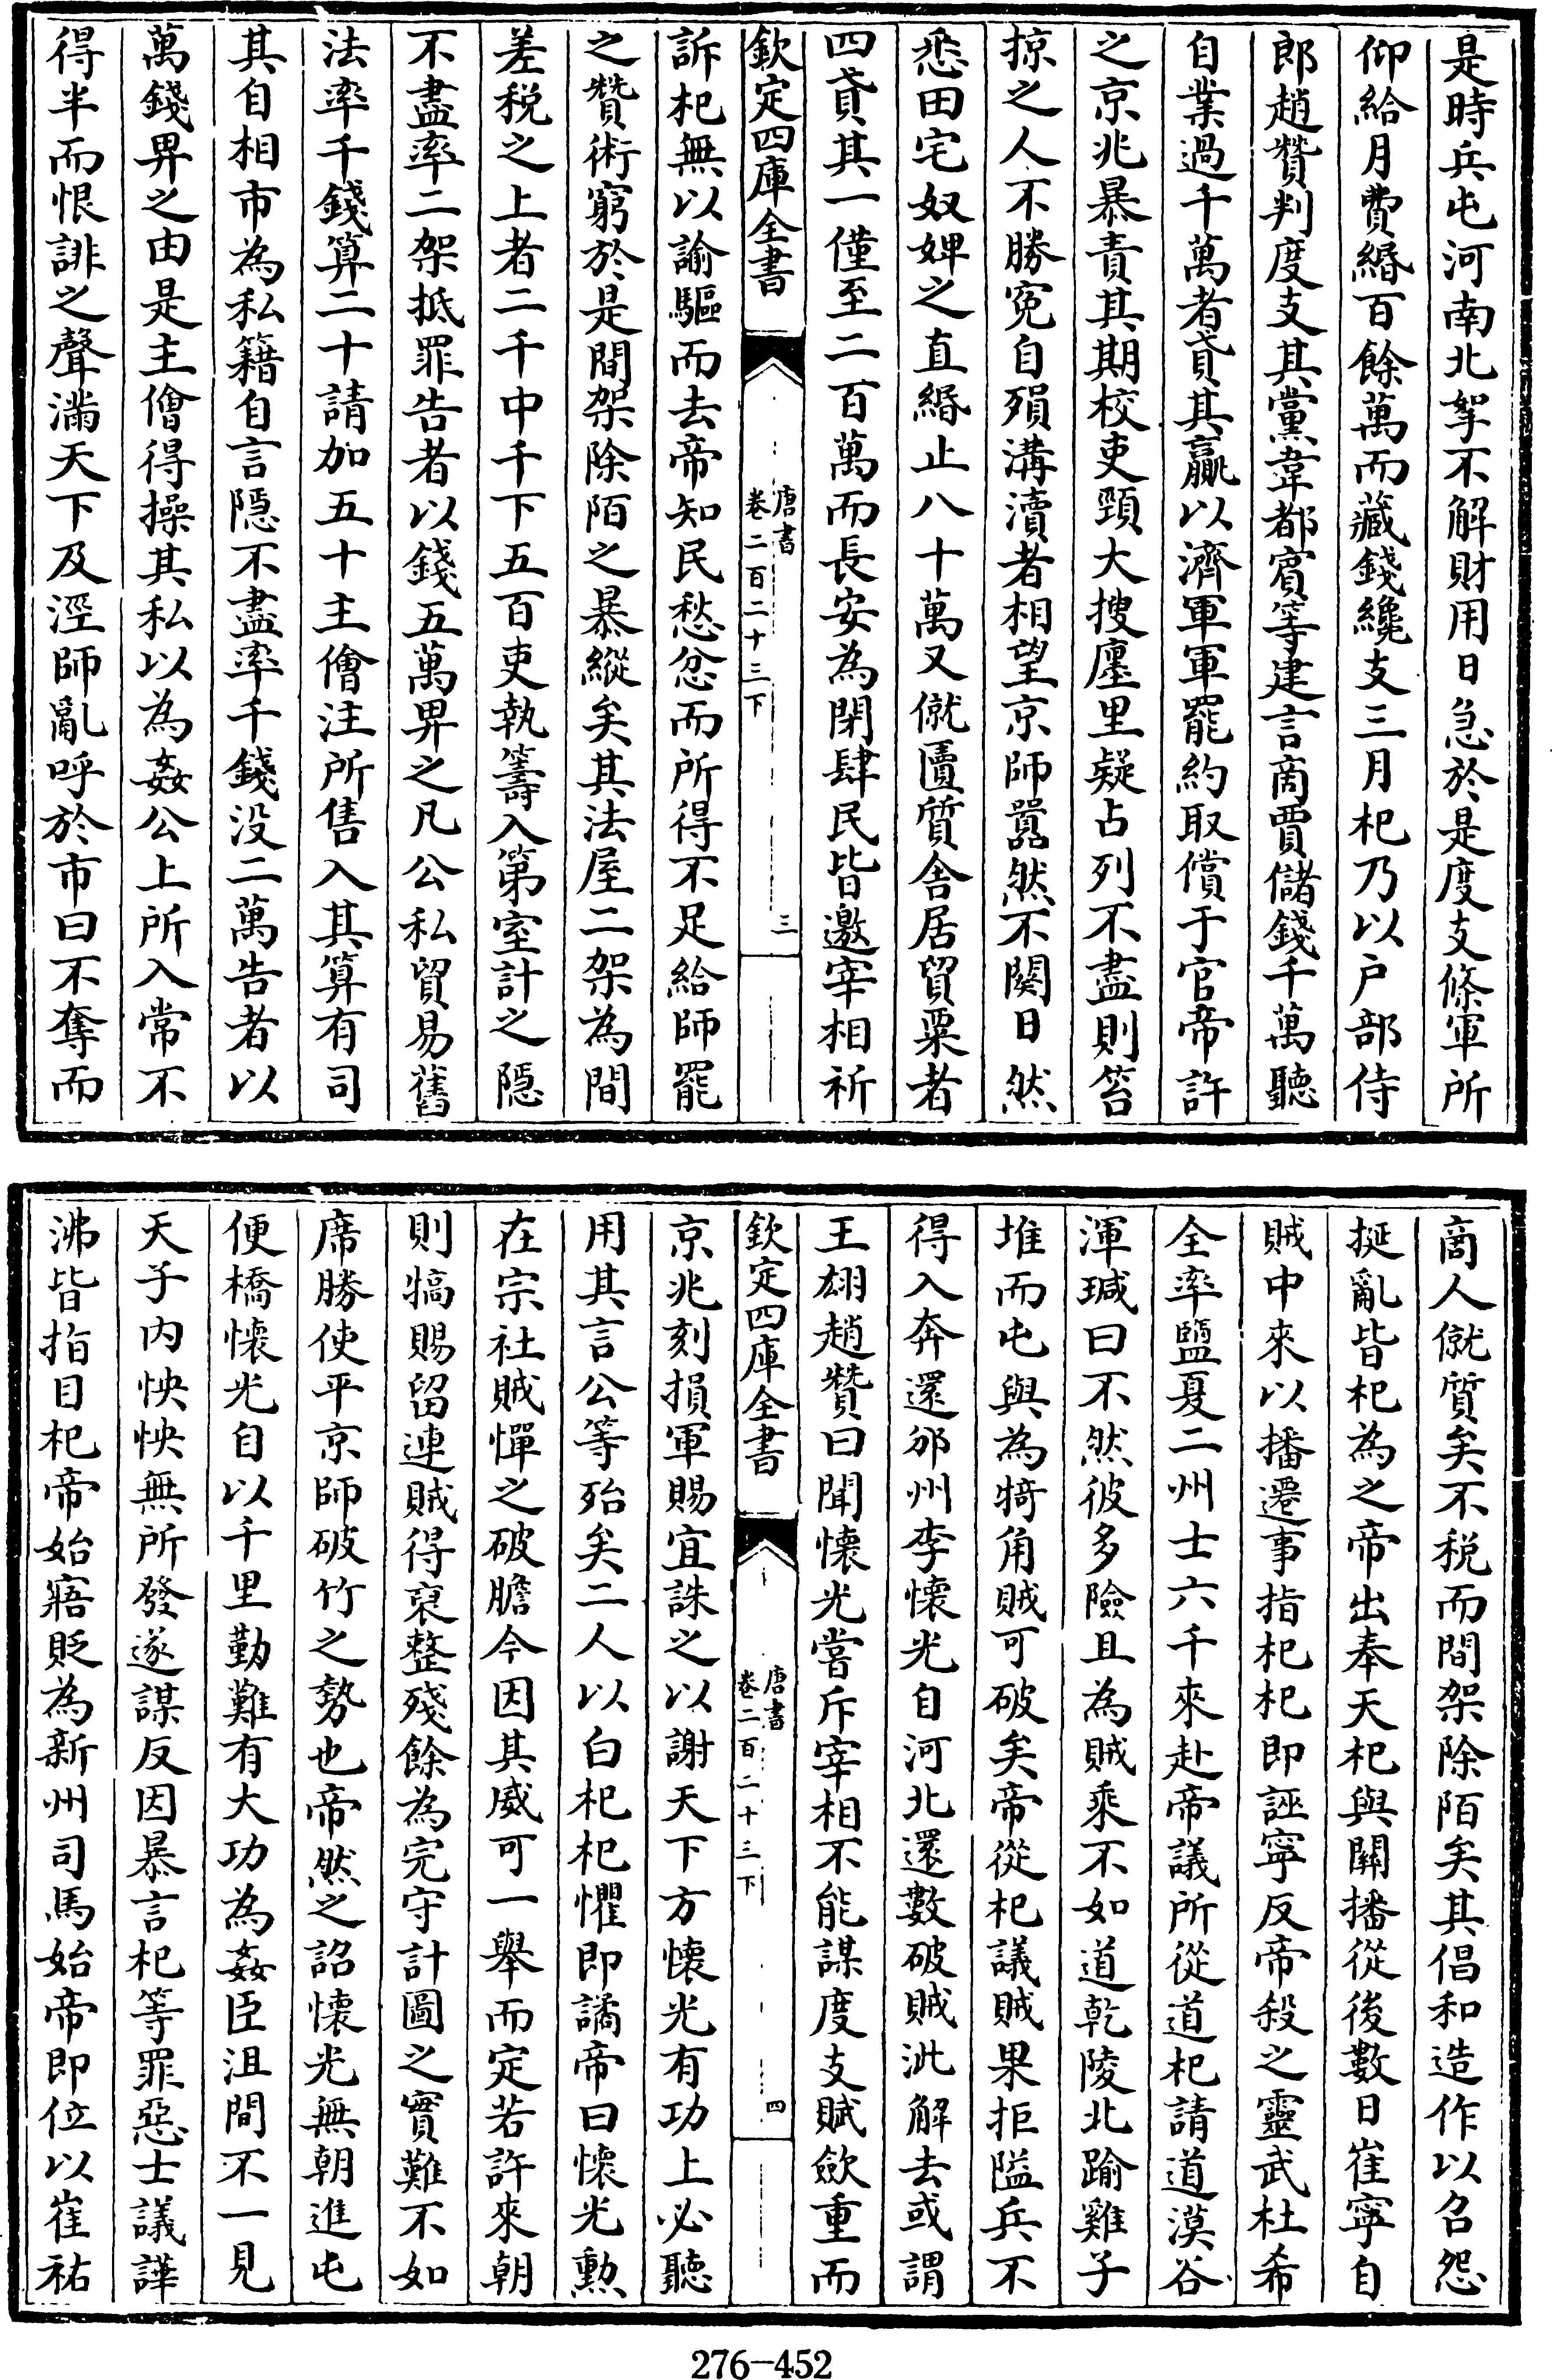 是時兵屯河南北挐不解財用日急於是度支條軍所
仰給月費緡百餘萬而藏錢纔支三月杞乃以户部侍
郎趙贊判度支其黨韋都賔等建言商賈儲錢千萬聽
自業過千萬者貣其贏以濟軍軍罷約取償于官帝許
之京兆暴責其期校吏頸大搜廛里疑占列不盡則笞
掠之人不勝寃自殞溝瀆者相望京師囂然不闋日然
悉田宅奴婢之直緡止八十萬又僦匱質舍居貿粟者
四貣其一僅至二百萬而長安為閉肆民皆邀宰相祈
欽定四庫全書
唐書
卷二百二十三下
三
訴杞無以諭驅而去帝知民愁忿而所得不足給師罷
之贊術窮於是間架除陌之暴縱矣其法屋二架為間
差税之上者二千中千下五百吏執籌入第室計之隠
不盡率二架抵罪告者以錢五萬畀之凡公私貿易舊
法率千錢算二十請加五十主儈注所售入其算有司
其自相市為私籍自言隠不盡率千錢没二萬告者以
萬錢畀之由是主儈得操其私以為姦公上所入常不
得半而恨誹之聲滿天下及涇師亂呼於市曰不奪而
商人僦質矣不税而間架除陌矣其倡和造作以召怨
挻亂皆杞為之帝出奉天杞與關播從後數日崔寧自
賊中來以播遷事指杞杞即誣寧反帝殺之靈武杜希
全率鹽夏二州士六千來赴帝議所從道杞請道漠谷
渾瑊曰不然彼多險且為賊乘不如道乾陵北踰雞子
堆而屯與為犄角賊可破矣帝從杞議賊果拒隘兵不
得入奔還邠州李懷光自河北還數破賊泚解去或謂
王翃趙贊曰聞懷光嘗斥宰相不能謀度支賦斂重而
欽定四庫全書
唐書
卷二百二十三下
四
京兆刻損軍賜宜誅之以謝天下方懷光有功上必聽
用其言公等殆矣二人以白杞杞懼即譎帝曰懷光勲
在宗社賊憚之破膽今因其威可一舉而定若許來朝
則犒賜留連賊得裒整殘餘為完守計圖之實難不如
席勝使平京師破竹之勢也帝然之詔懷光無朝進屯
便橋懷光自以千里勤難有大功為姦臣沮間不一見
天子内怏怏無所發遂謀反因暴言杞等罪惡士議譁
沸皆指目杞帝始寤貶為新州司馬始帝即位以崔祐
276-452